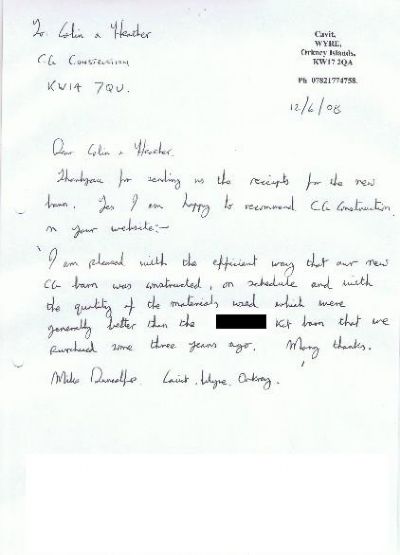 To Colin & Heather
CG Construction
KW14 7QU.
Cavit,
WYRE,
Orkney Islands.
KW17 2QA
Ph 07821774758.
12/6/08
Dear Colin & Heather.
Thankyou for sending us the receipts for the new
barn. Yes I am happy to recommend CG Construction
on your website:-
'I am pleased with the efficient way that our new
CG barn was constructed, on schedule and with
the quality of the materials used which were
generally better than the Kit barn that we
purchased some three years ago. Many thanks.'
Mike Cavit, Wyre, Orkney.